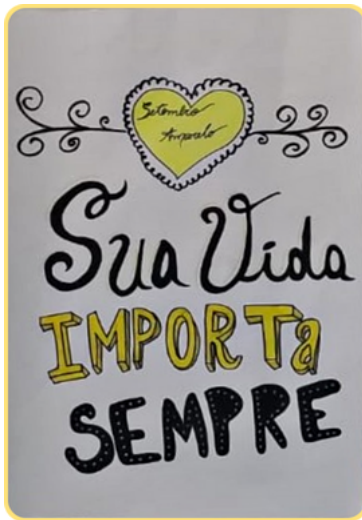 Setembro
Amarelo
Sua Vida
IMPORTa
SEMPRE